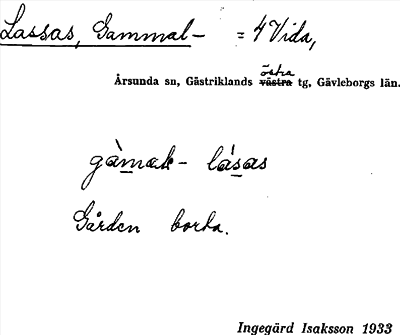 Lassas, Gammal- = 4 Vida,
östra
Årsunda sn, Gästriklands västra tg, Gävleborgs län.
gàmak- lásas
Gården borta.
Ingegärd Isaksson 1933